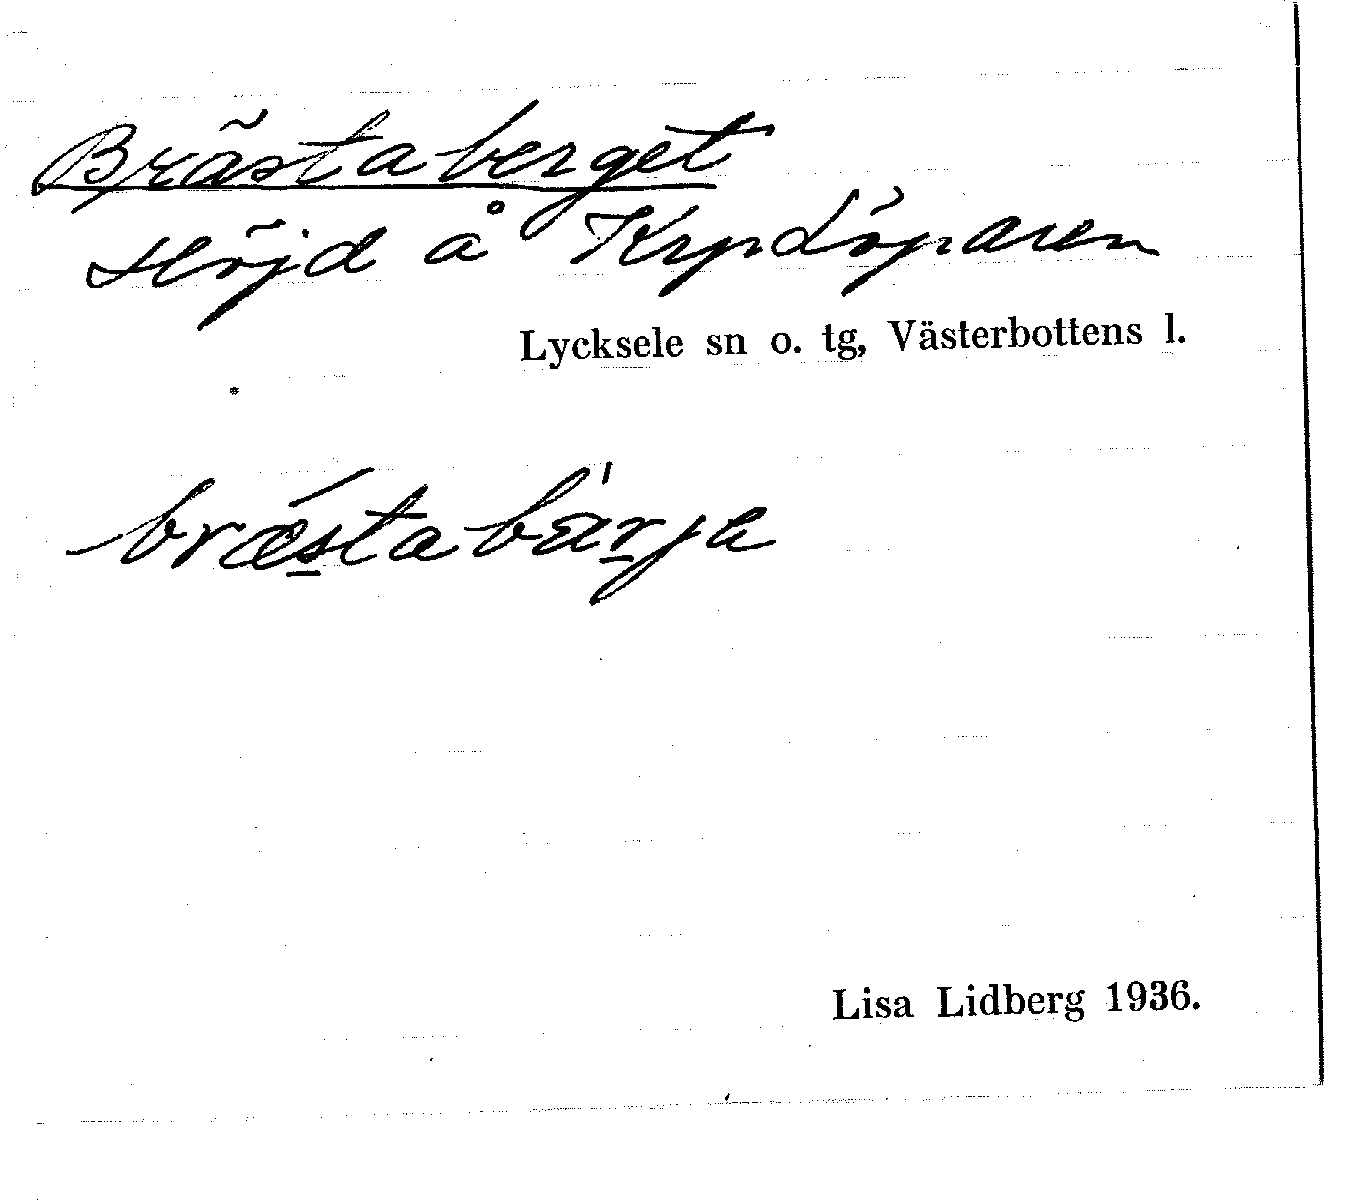 Brästaberget
Höjd å Kryplöparen
Lycksele sn o. tg, Västerbottens l.
bræ´stabä'rja
Lisa Lidberg 1936.